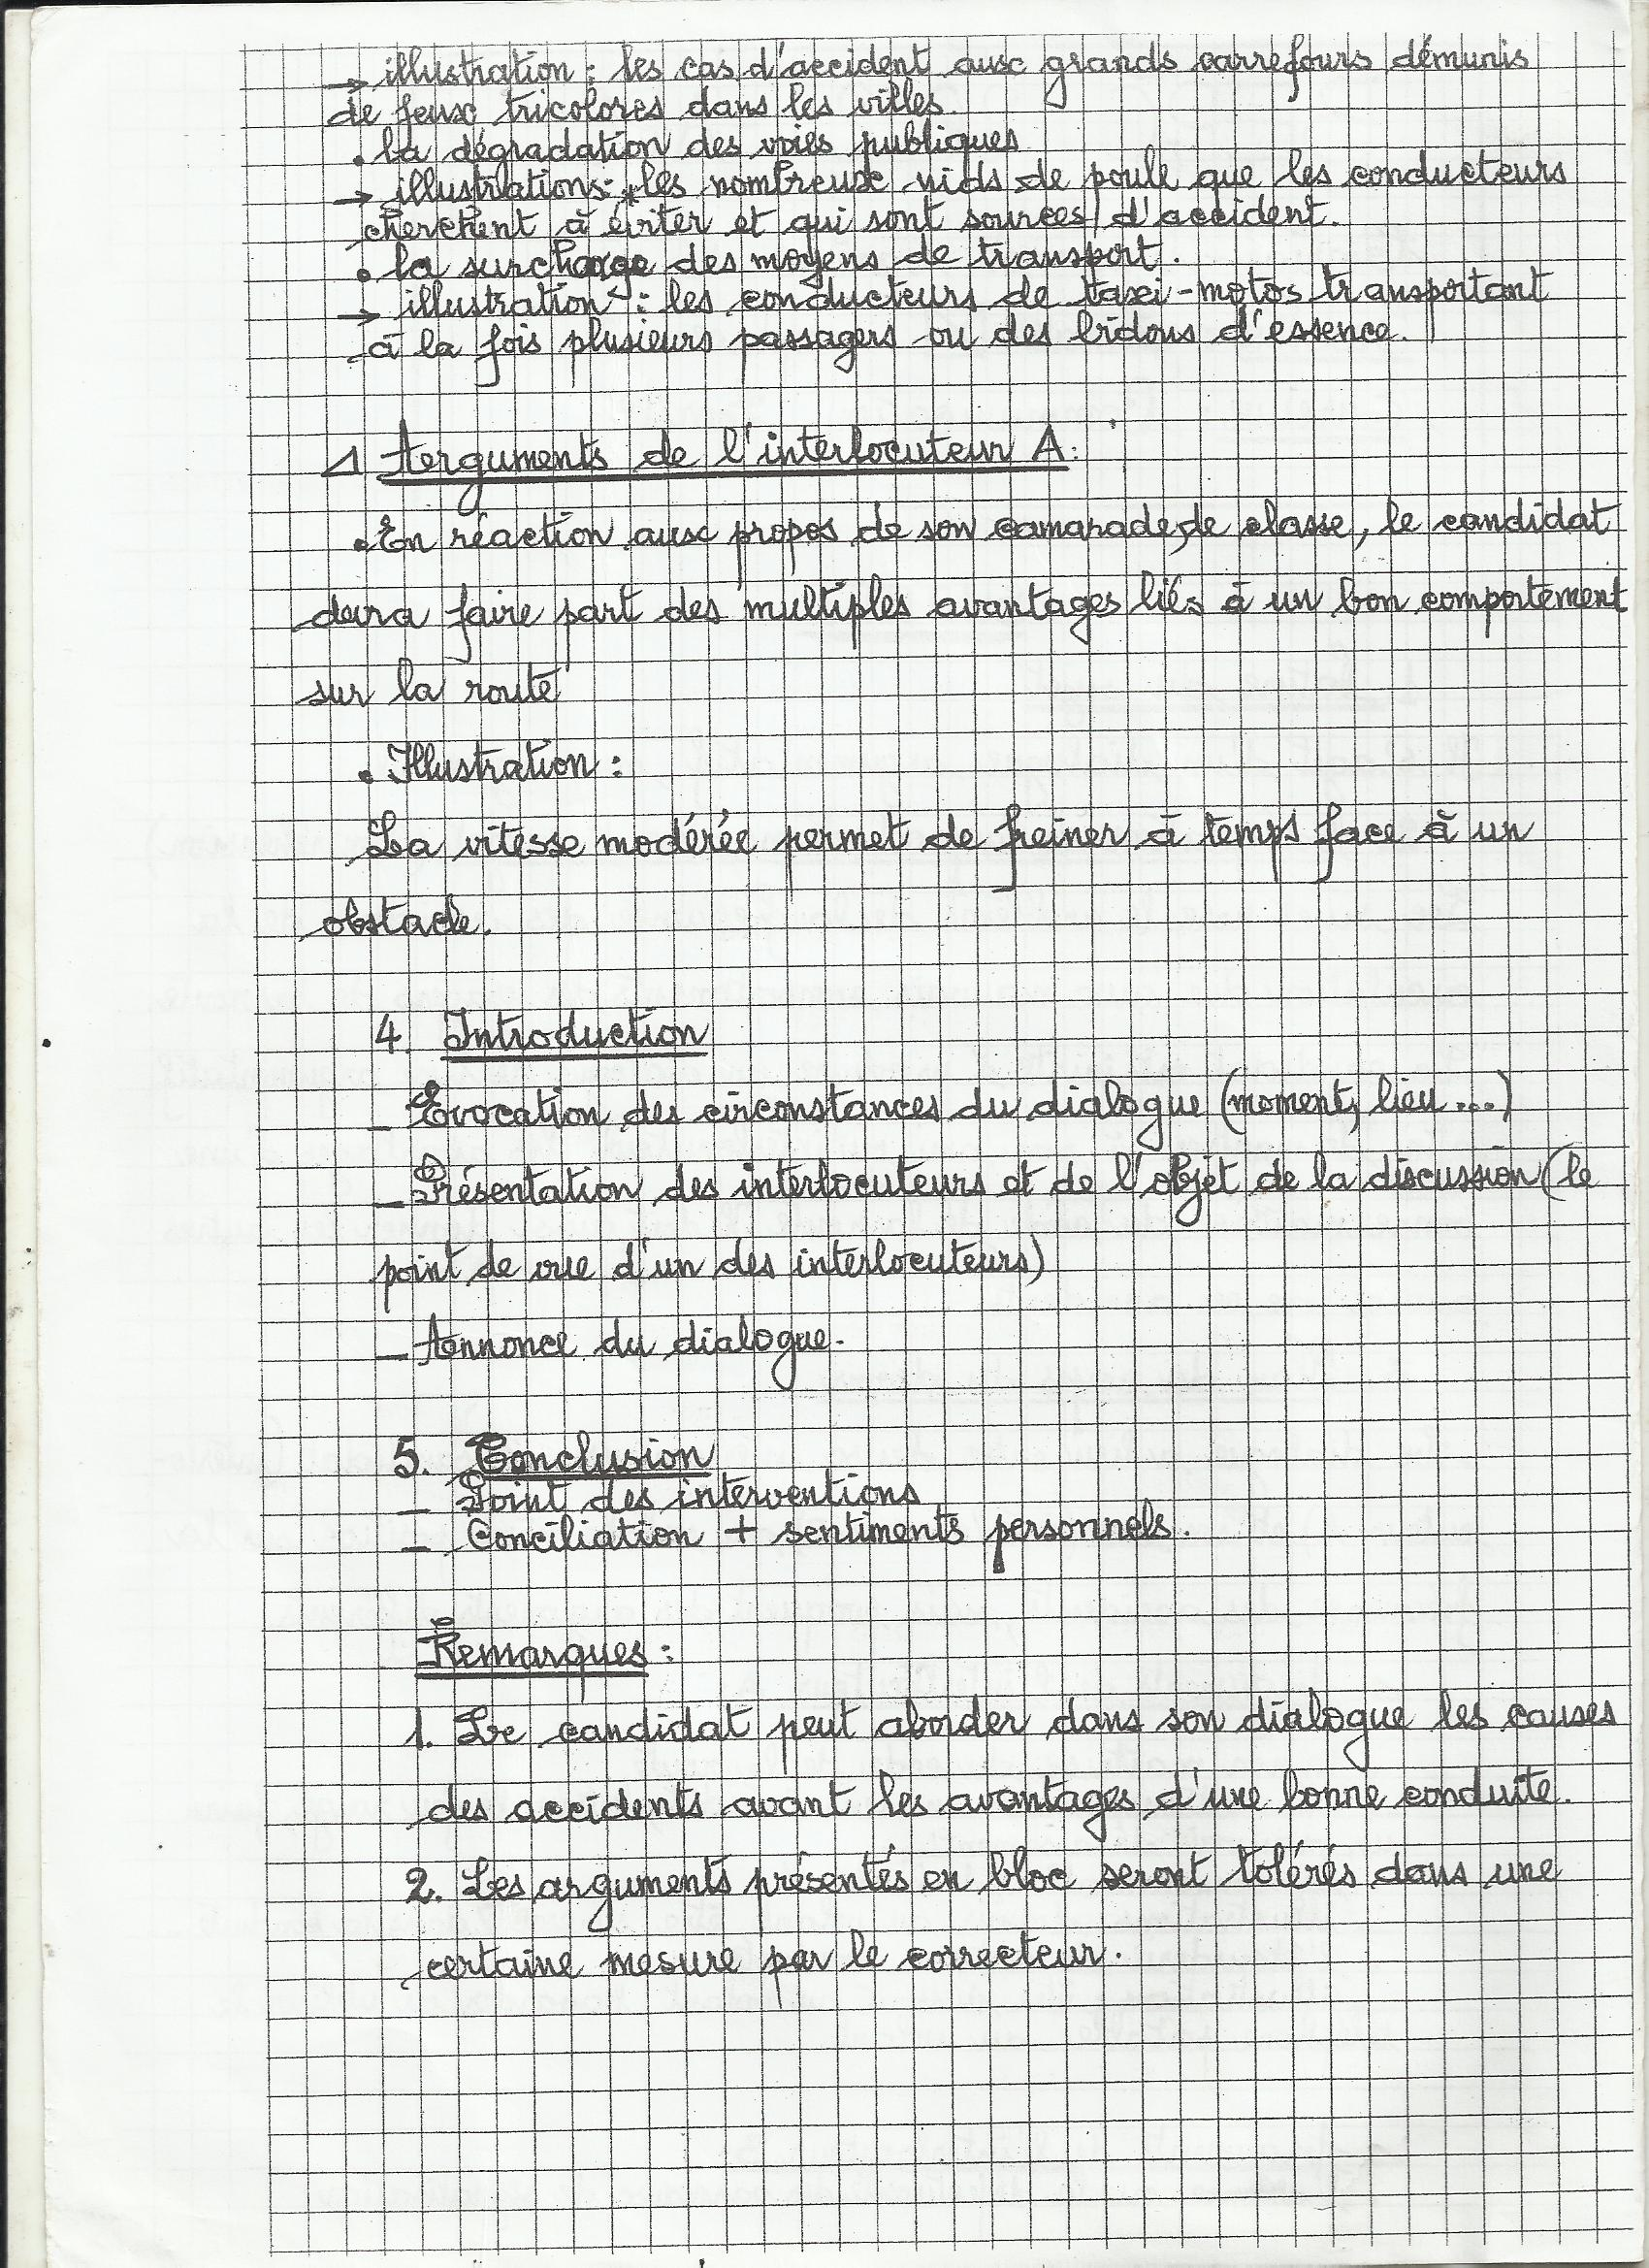 → illustration : les cas d'accident aux grands carrefours démunis
de feux tricolores dans les villes.
. la dégradation des voies publiques
→ illustrations: * les nombreux nids de poule que les conducteurs
cherchent à éviter et qui sont sources d'accident.
. la surcharge des moyens de transport.
→ illustration : les conducteurs de taxi-motos transportant
à la fois plusieurs passagers ou des bidons d'essence.
Arguments de l'interlocuteur A:
. En réaction aux propos de son camarade de classe, le candidat
devra faire part des multiples avantages liés à un bon comportement
sur la route
. Illustration :
La vitesse modérée permet de freiner à temps face à un
obstacle.
4. Introduction
_ Evocation des circonstances du dialogue (moment, lieu...)
_ Présentation des interlocuteurs et de l'objet de la discussion (le
point de vue d'un des interlocuteurs)
_ Annonce du dialogue.
5. Conclusion
_ Point des interventions
_ Conciliation + sentiments personnels.
Remarques :
1. Le candidat peut aborder dans son dialogue les causes
des accidents avant les avantages d'une bonne conduite.
2. Les arguments présentés en bloc seront tolérés dans une
certaine mesure par le correcteur.